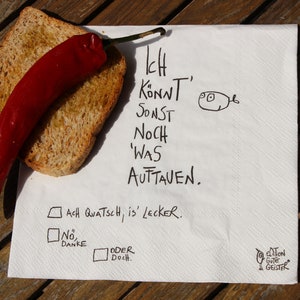 ICH
KÖNNT'
SONST
NOCH
'WAS
AUFTAUEN.
ACH QUATSCH, IS' LECKER.
NÖ,
DANKE
ODER
DOCH.
EDITION
GUTE
GEISTER